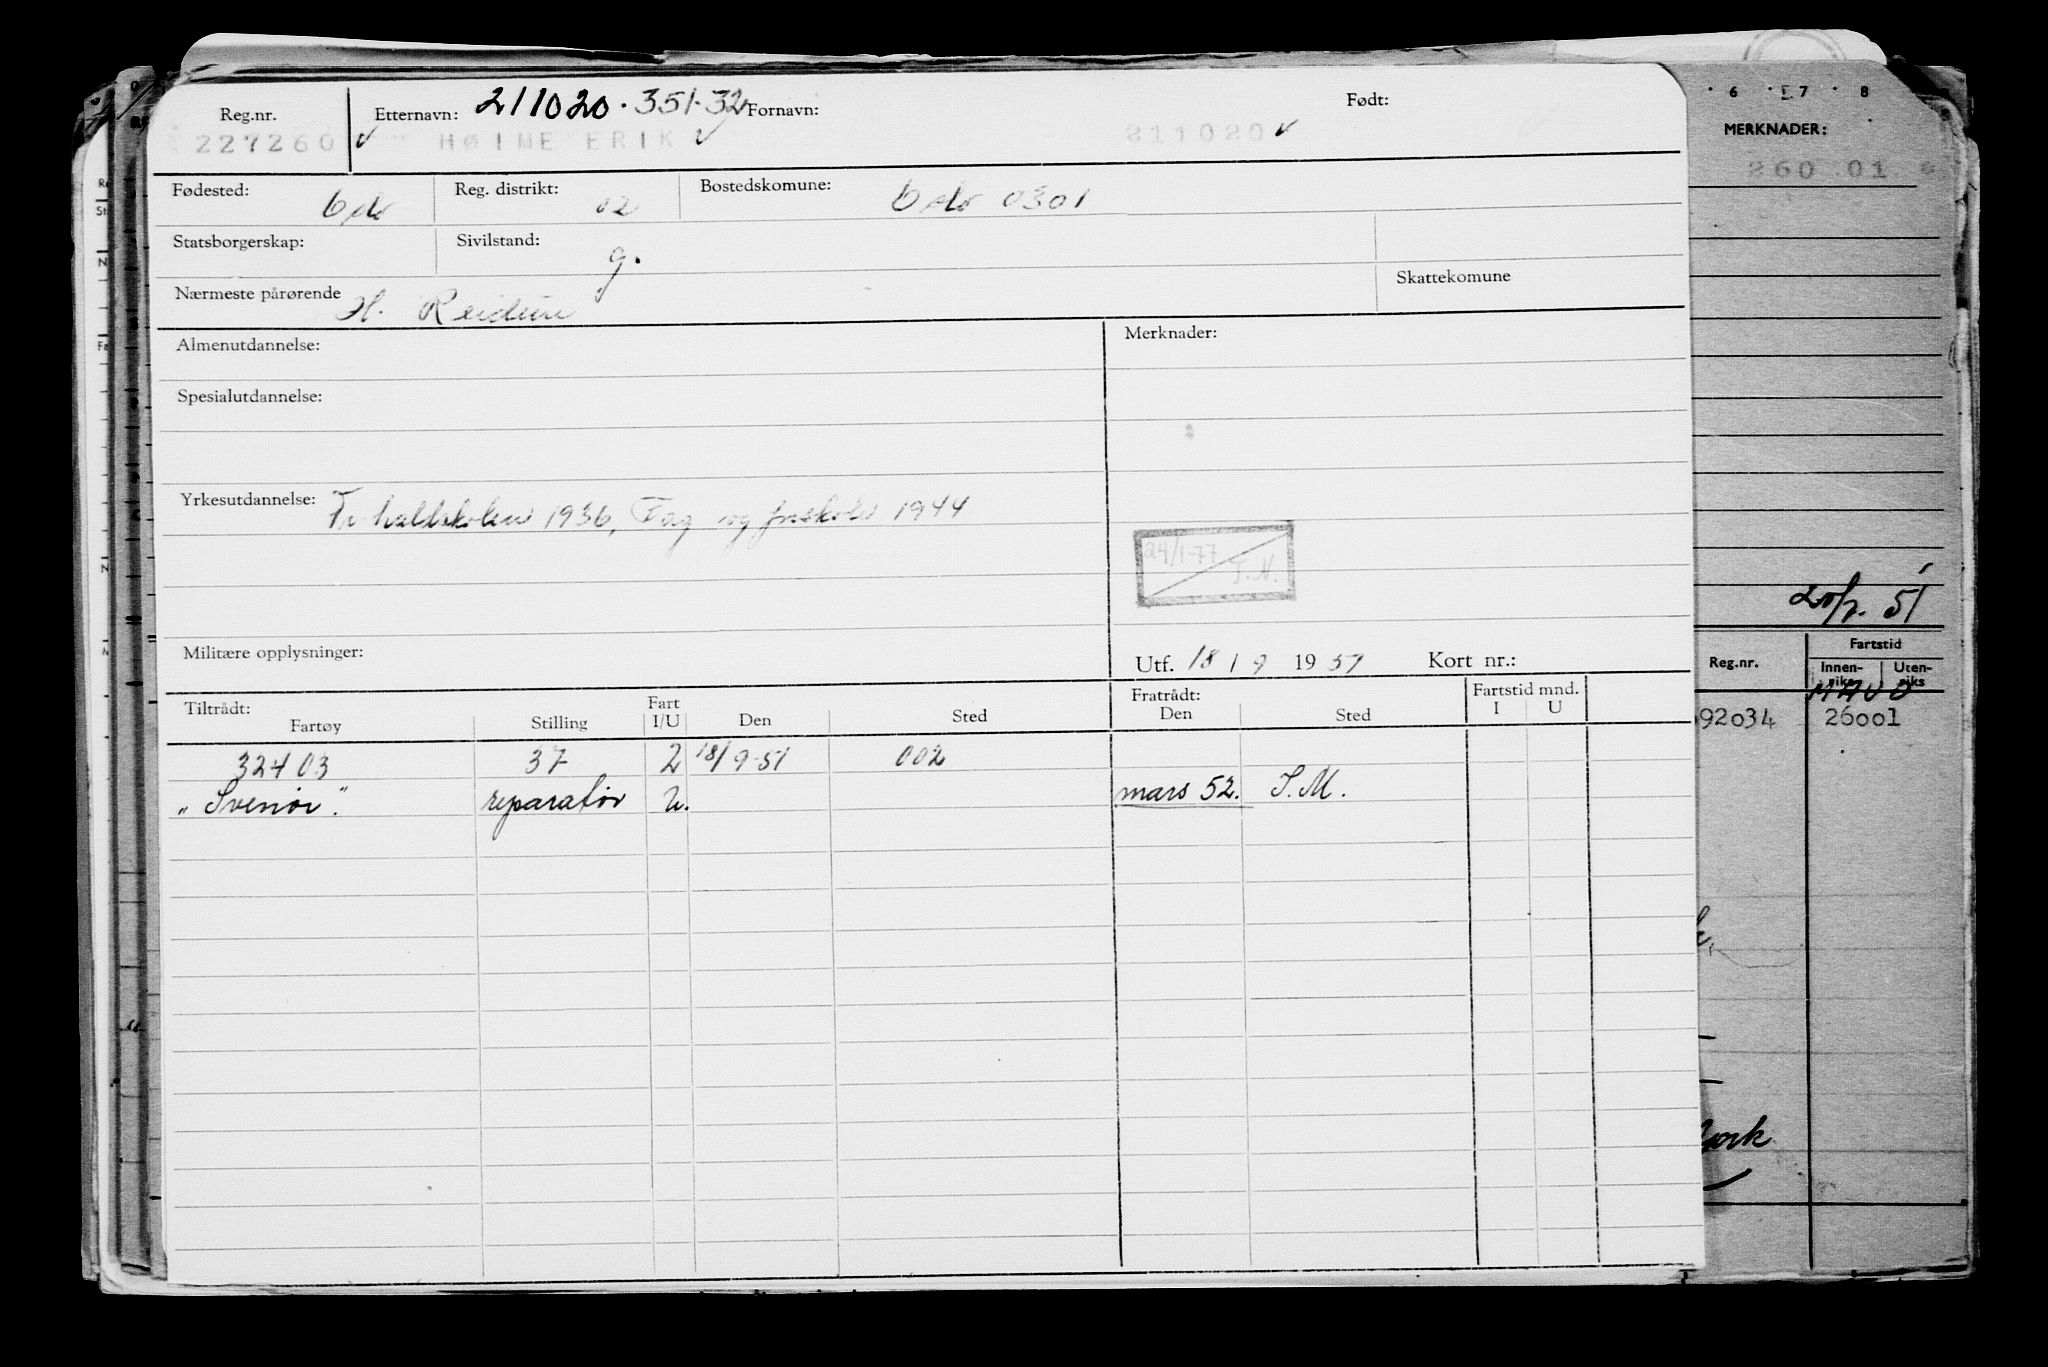 Reg.nr. Etternavn: 211020.351-32 Fornavn: Født:
227260 HØINE ERIK 211020
Fødested: Oslo Reg. distrikt: 02 Bostedskomune: Oslo 0301
Statsborgerskap: Sivilstand: g.
Nærmeste pårørende H. Reidun Skattekomune
Almenutdannelse: Merknader:
Spesialutdannelse:
Yrkesutdannelse: Fr. halldskolen 1936, Fag og forskole 1944
24/1-77
T.N.
Militære opplysninger: Utf. 18 / 9 1951 Kort nr.:
Tiltrådt: Fart Fratrådt: Fartstid mnd.
Fartøy Stilling I/U Den Sted Den Sted I U
32403 37 2 18/9-51 002
"Svenør". reparatør U. mars 52. S.M.
6 7 8
MERKNADER:
260 01
51
Reg.nr. Fartstid
Innen- Uten-
riks riks
92034 26001